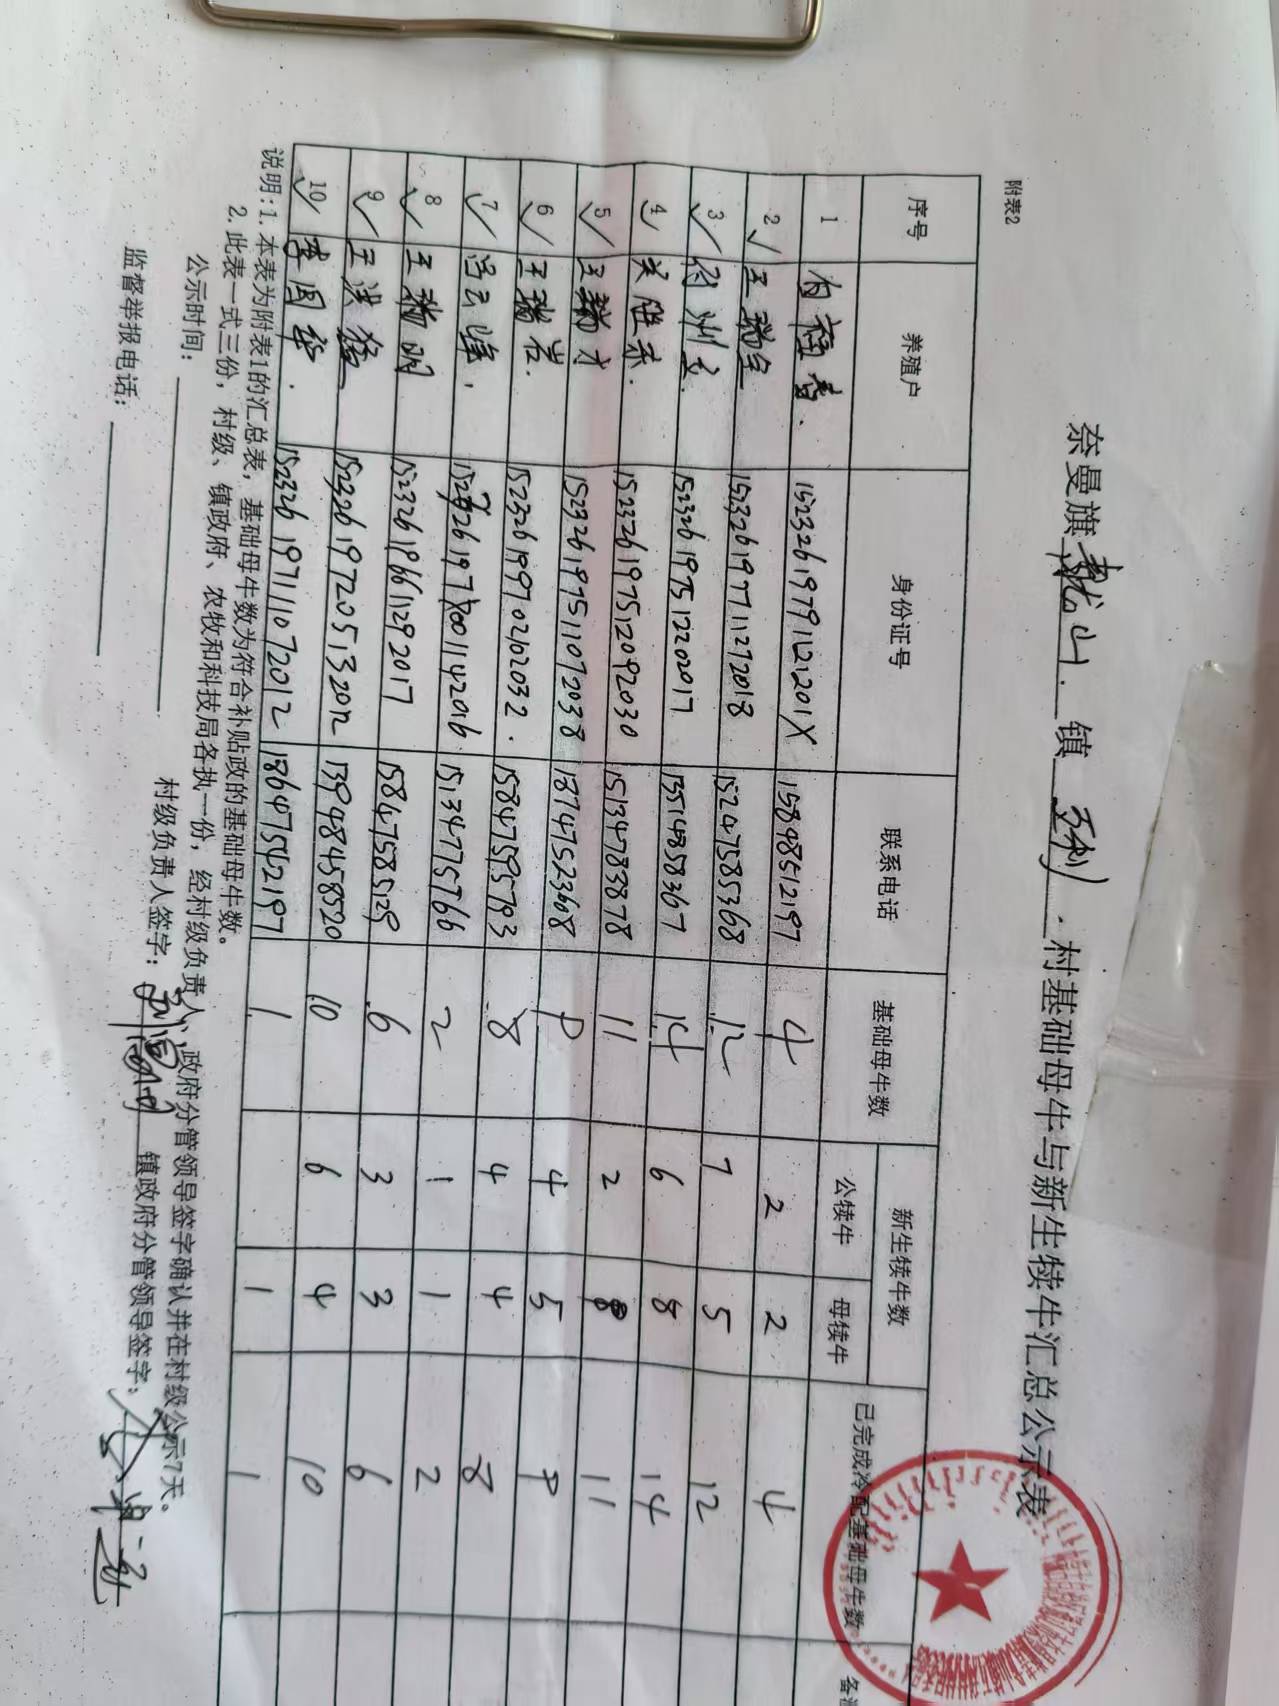 附表2
奈曼旗 青龙山 镇 村基础母牛与新生犊牛汇总公示表
序号 养殖户 身份证号 联系电话 基础母牛数 新生犊牛数 已完成冷配基础母牛数 备注
公犊牛 母犊牛
1 15232619791121201X 15848512197 4 2 2 4
2 王瑞 152326197711272018 15247585368 12 7 5 12
3 152326197512202017 13514858367 14 6 8 14
4 关胜 152326197512092030 15134783878 11 2 8 11
5 王瑞才 152326197511072038 18747523608 9 4 5 9
6 王瑞岩 152326199702162032 15847595793 8 4 4 8
7 云峰 15134775766 2 1 1 2
8 王瑞明 152326196611292017 15847585129 6 3 3 6
9 王洪 152326197205132012 13948458520 10 6 4 10
10 李国华 152326197111072012 18647542197 1 1 1
说明:1.本表为附表1的汇总表,基础母牛数为符合补贴政的基础母牛数。
2.此表一式三份,村级、镇政府、农牧和科技局各执一份,经村级负责人、政府分管领导签字确认并在村级公示7天。
公示时间: 村级负责人签字: 镇政府分管领导签字:
监督举报电话: